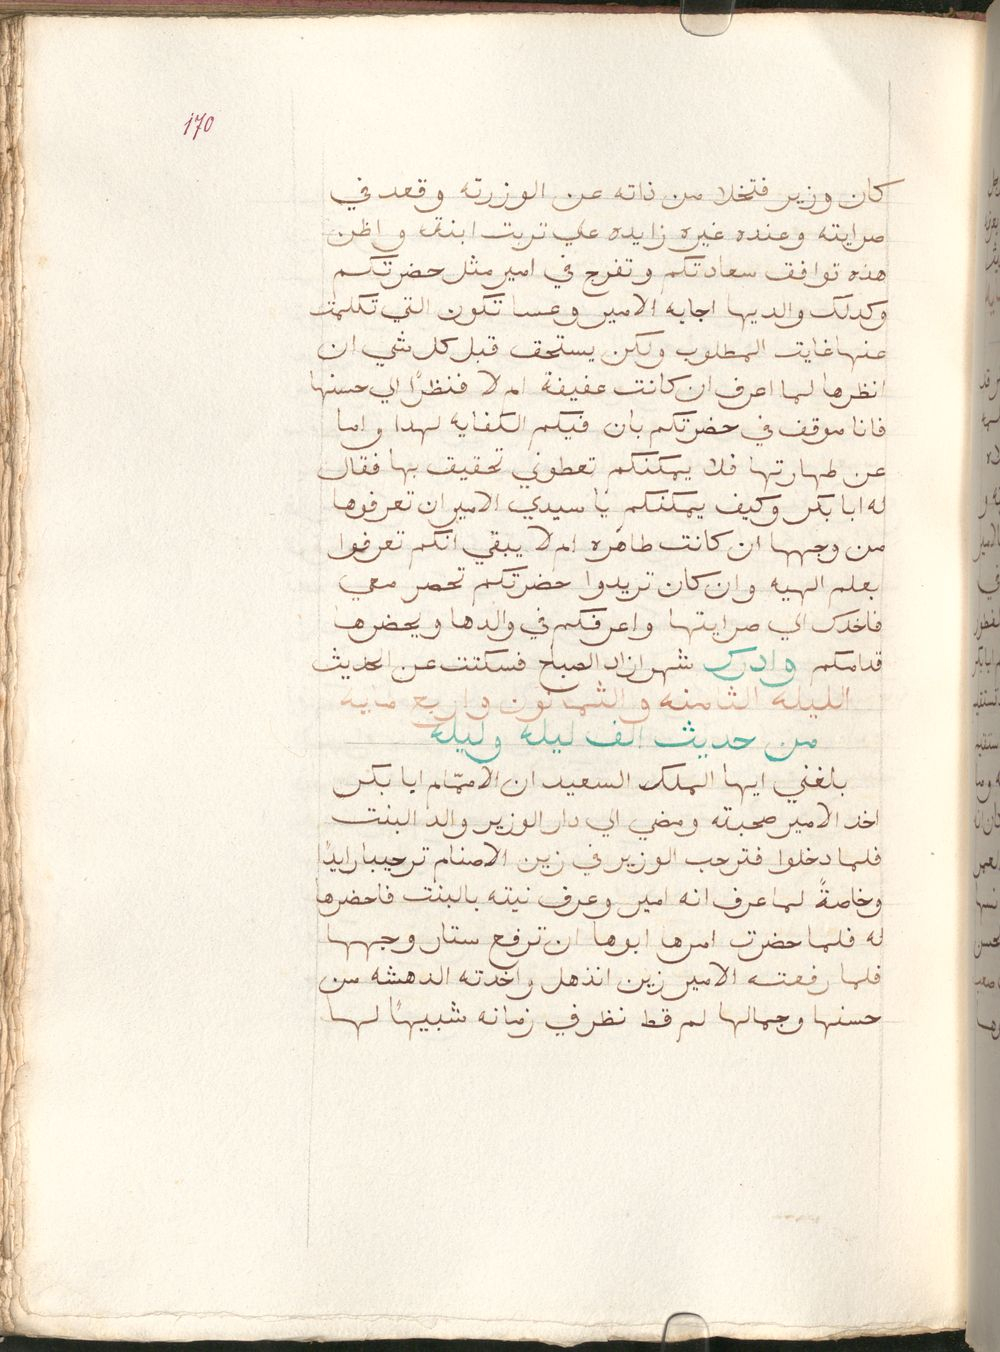 170
كان وزير فتخلا من ذاته عن الوزرته وقعد في
صرايته وعنده غيره زايده علي تربت ابنته واظن
هذه توافق سعادتكم وتفرج في امير مثل حضرتكم
وكدلك والديها اجابه الامير وعسا تكون التي تكلمت
عنها غايت المطلوب ولكن يستحق قبل كل شي ان
انظرها لما اعرف ان كانت عفيفة ام لا فنظرًا الي حسنها
فانا موقف في حضرتكم بان فيكم الكفايه لهدا واما
عن طهارتها فلا يمكنكم تعطوني تحقيق بها فقال
له ابا بكر وكيف يمكنكم يا سيدي الامير ان تعرفوها
من وجهها ان كانت طاهره ام لا يبقي انكم تعرفوا
بعلم الهيه وان كان تريدوا حضرتكم تحصر معي
فاخدك الي صرايتها واعرفكم في والدها ويحضرها
قدامكم وادرك شهرازاد الصباح فسكتت عن الحديث
الليله الثامنه والثمانون واربع مايه
من حديث الف ليله وليله
بلغني ايها الملك السعيد ان الامّام ابا بكر
اخد الامير صحبته ومضي الي دار الوزير والد البنت
فلما دخلوا فترحب الوزير في زين الاصنام ترحيبا زايدًا
وخاصةً لما عرف انه امير وعرف نيته بالبنت فاحضرها
له فلما حضرت امرها ابوها ان ترفع ستار وجهها
فلما رفعته الامير زين انذهل واخدته الدهشه من
حسنها وجمالها لم قط نظر في زمانه شبيهًا لها